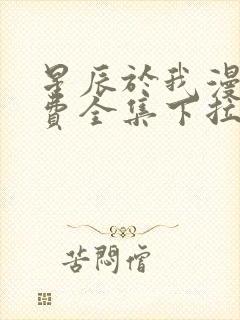 星辰於我漫
費全集下拉
苦悶僧